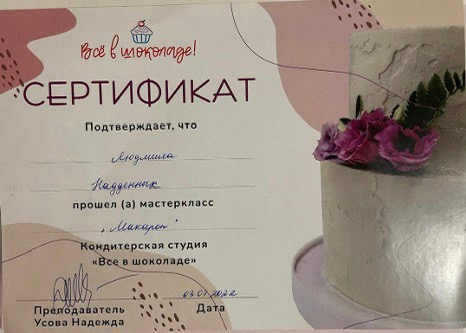 Всё в шоколаде!
СЕРТИФИКАТ
Подтверждает, что
Людмила
прошел (а) мастеркласс
„Макарон"
Кондитерская студия
«Все в шоколаде»
Преподаватель
Усова Надежда
Дата